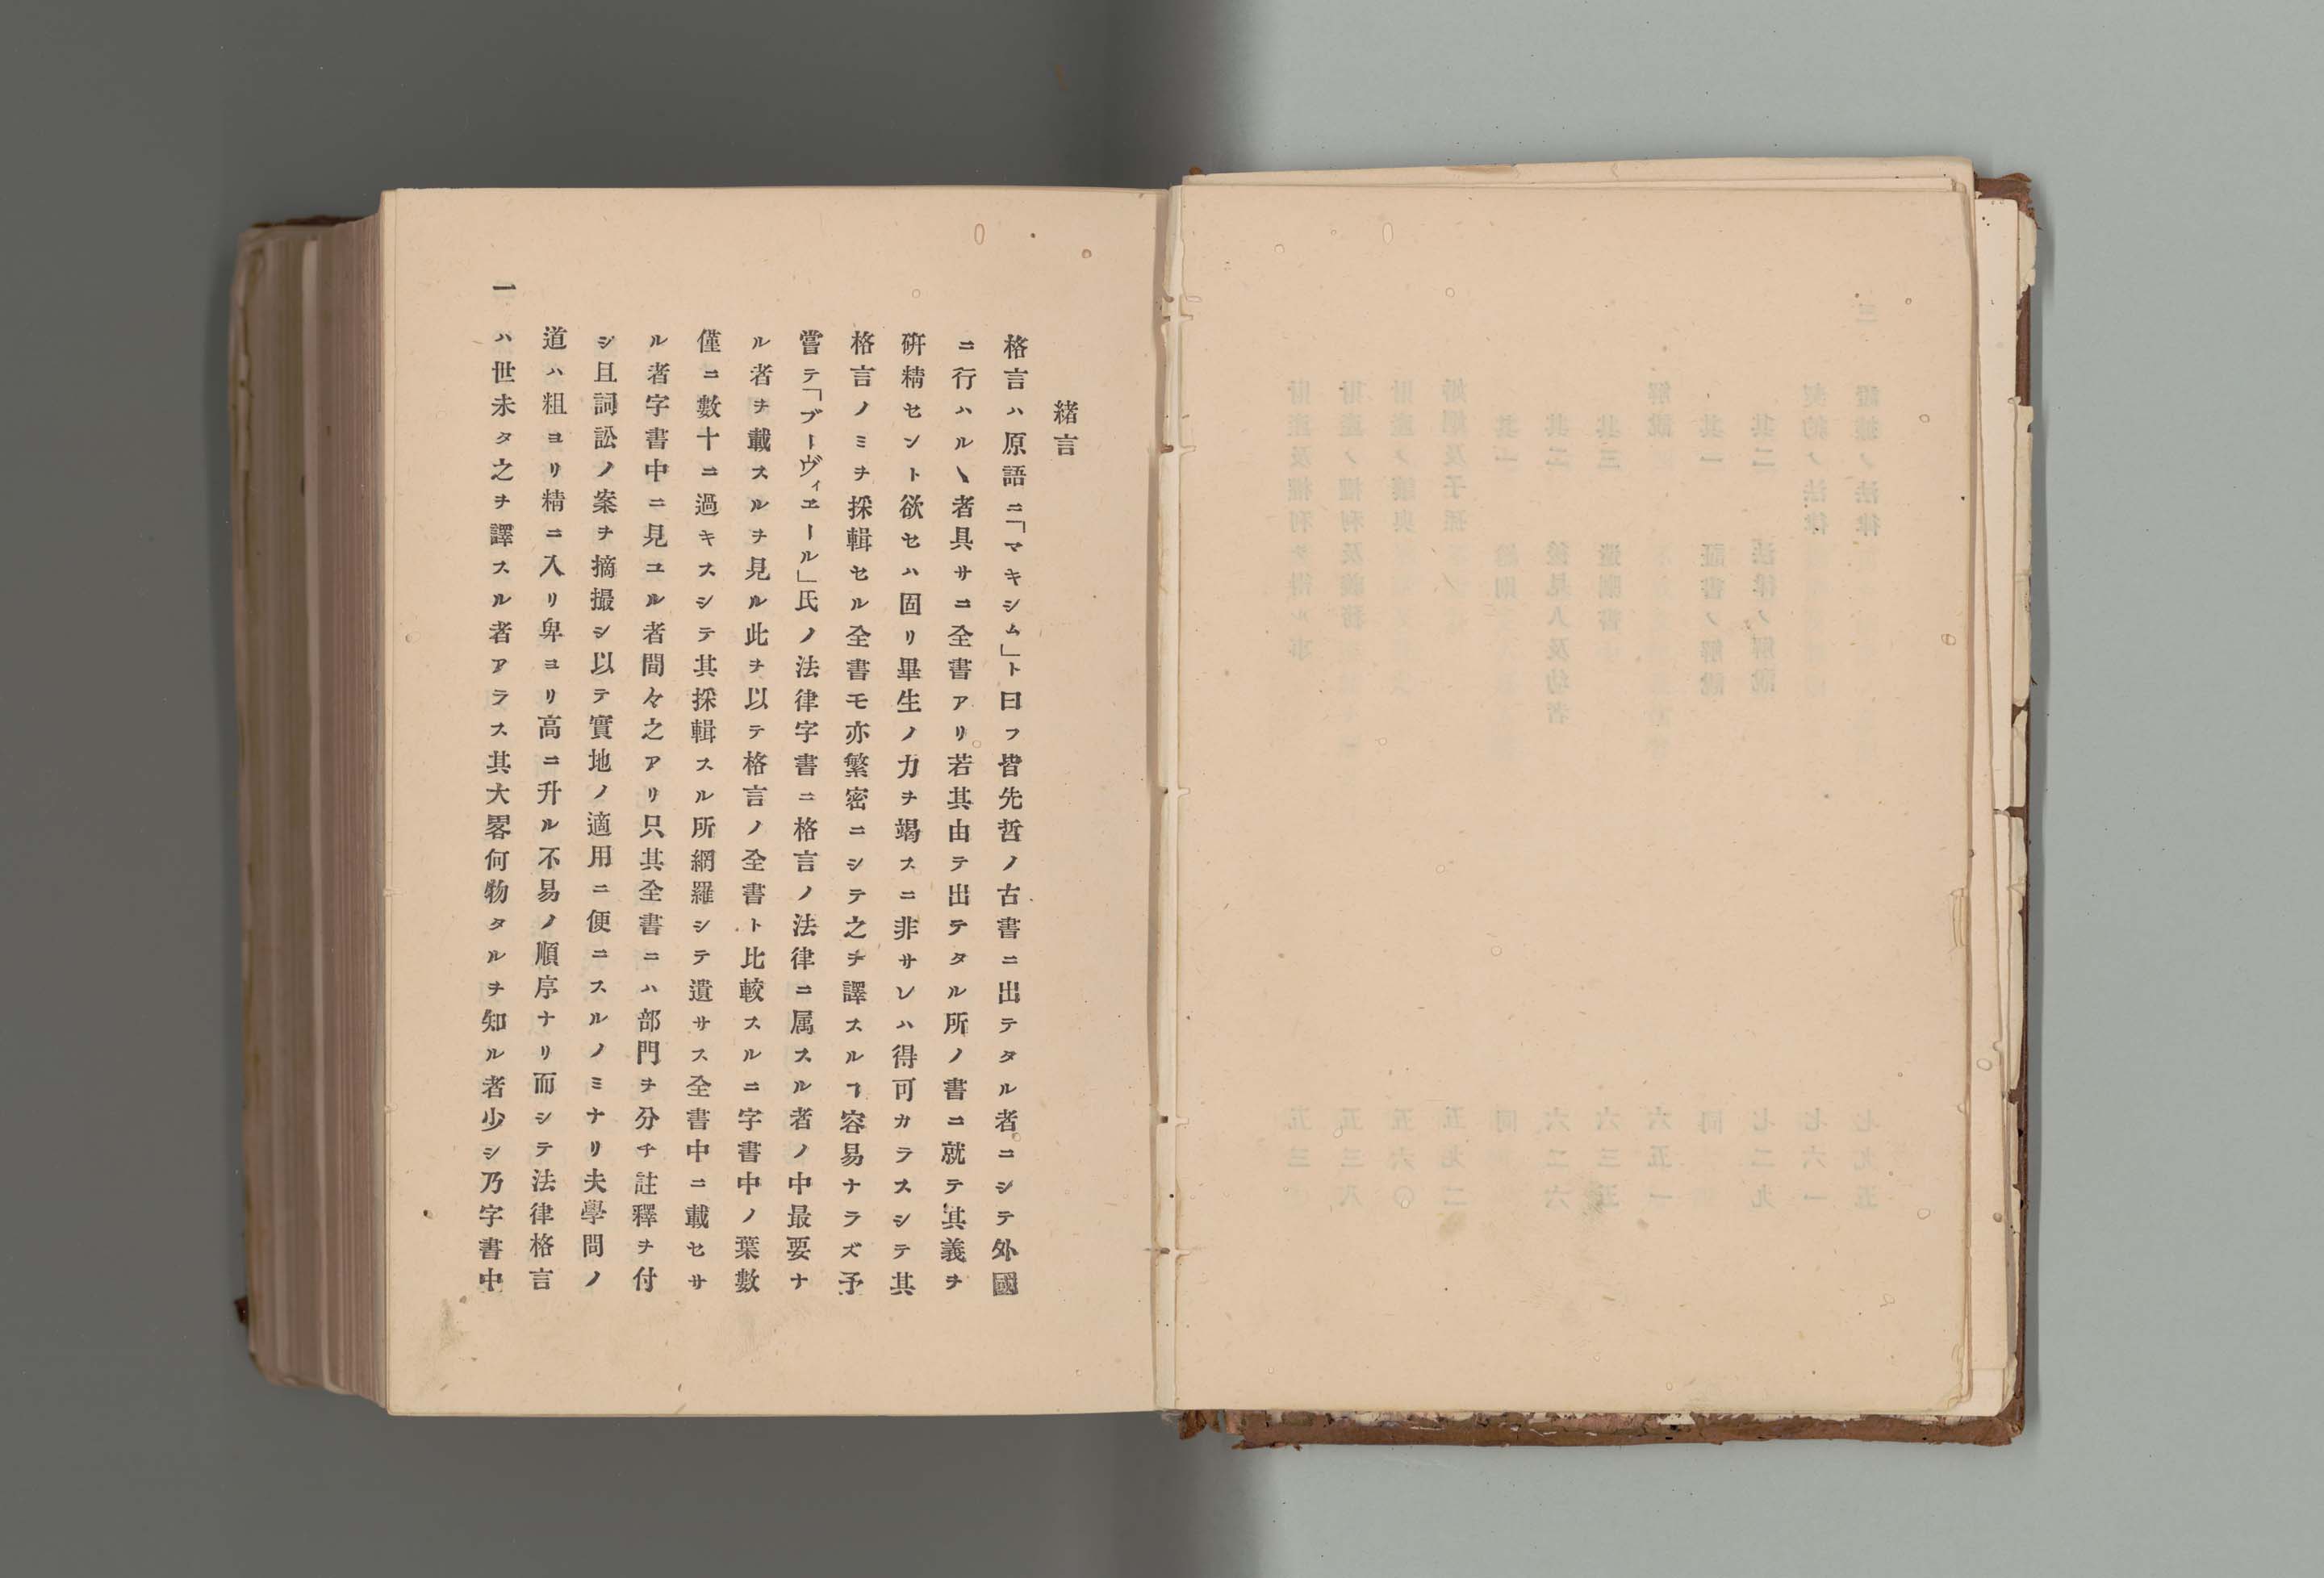 緒言
格言ハ原語ニ「マキシム」ト曰フ皆先哲ノ古書ニ出テタル者ニシテ外國
ニ行ハルヽ者具サニ全書アリ若其由テ出テタル所ノ書ニ就テ其義ヲ
硏精セント欲セハ固リ畢生ノ力ヲ竭スニ非サレハ得可カラスシテ其
格言ノミヲ採輯セル全書モ亦繁密ニシテ之ヲ譯スルヿ容易ナラズ予
嘗テ「ブーヴィエール」氏ノ法律字書ニ格言ノ法律ニ属スル者ノ中最要ナ
ル者ヲ載スルヲ見ル此ヲ以テ格言ノ全書ト比較スルニ字書中ノ葉數
僅ニ數十ニ過キスシテ其採輯スル所網羅シテ遺サス全書中ニ載セサ
ル者字書中ニ見ユル者間々之アリ只其全書ニハ部門ヲ分チ註釋ヲ付
シ且詞訟ノ案ヲ摘撮シ以テ實地ノ適用ニ便ニスルノミナリ夫學問ノ
道ハ粗ヨリ精ニ入リ卑ヨリ高ニ升ル不易ノ順序ナリ而シテ法律格言
ハ世未タ之ヲ譯スル者アラス其大畧何物タルヲ知ル者少シ乃字書中
一